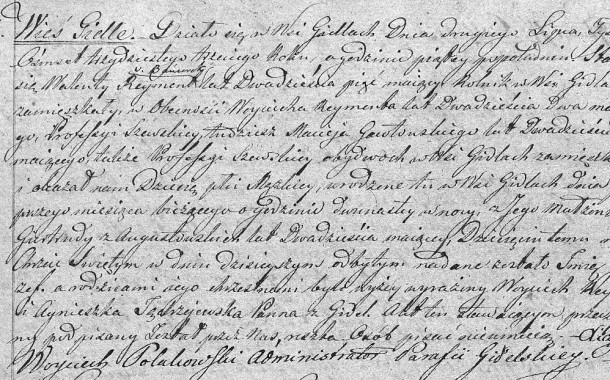 Wieś Gidle. Działo się w Wsi Gidlach Dnia drugiego Lipca, Tys
Ośmset trzydziestego trzeciego Roku, o godzinie piątey popołudniu Sta
się Walenty Reyment lat Dwadzieścia pięć maiący, Rolnik w Wsi Gidla
zamieszkały, w Obecności Woyciecha Reymenta lat Dwadzieścia Dwa ma
go, Professyi Szewskiey, tudzież Macieja Gawłowskiego lat Dwadzieścia
maiącego, także Professyi Szewskiey obydwoch w Wsi Gidlach zamieszk
i okazał nam Dziecię płci Męzkiey, urodzone tu w Wsi Gidlach dnia
pszego miesiąca bieżącego o godzinie dwunastey w nocy z Jego Małżon
Gertrudy z Augustowskich lat Dwadzieścia maiącey, Dziecięciu temu
Chrzcie Świętym w dniu dzisieyszym odbytym nadane zostało Imię
zef. a rodzicami iego chrzestnemi byli wyżey wyrażony Woyciech Rey
i Agnieszka Panna z Gidel. Akt ten stawaiącym przeczy
ny podpisany Został przez Nas, reszta Osób pisać nieumieią.
Woyciech Polakowski Administrator Parafii Gidelskiey.